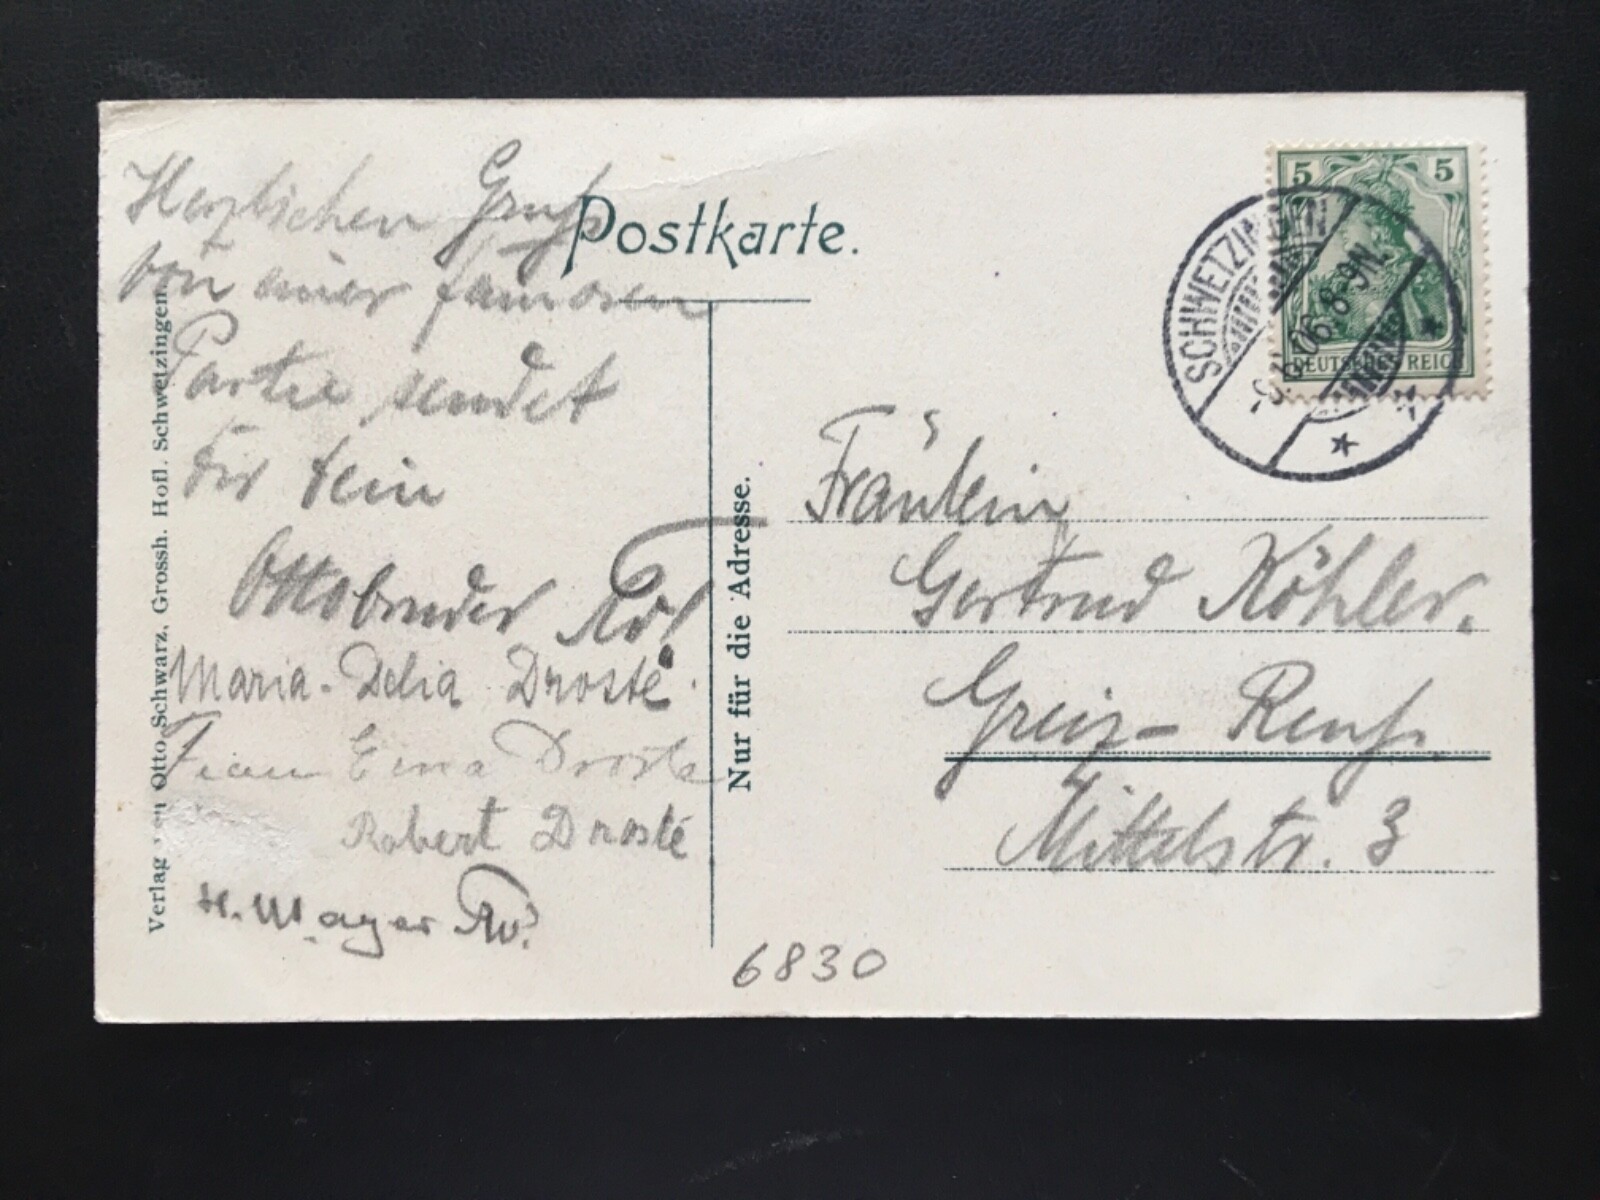 Herzlichen Gruß
von einer famosen
Partie sendet
Dir Dein
Ottobruder
Maria-Delia Droste.
Frau Ema Droste
Robert Droste
H. Mayer
Postkarte.
Nur für die Adresse.
Verlag von Otto Schwarz, Grossh. Hofl. Schwetzingen.
5 5
DEUTSCHES REICH
SCHWETZINGEN
06. 8-9N.
Fräulein
Gertrud Köhler.
Greiz-Reuß.
Mittelstr. 3
6830